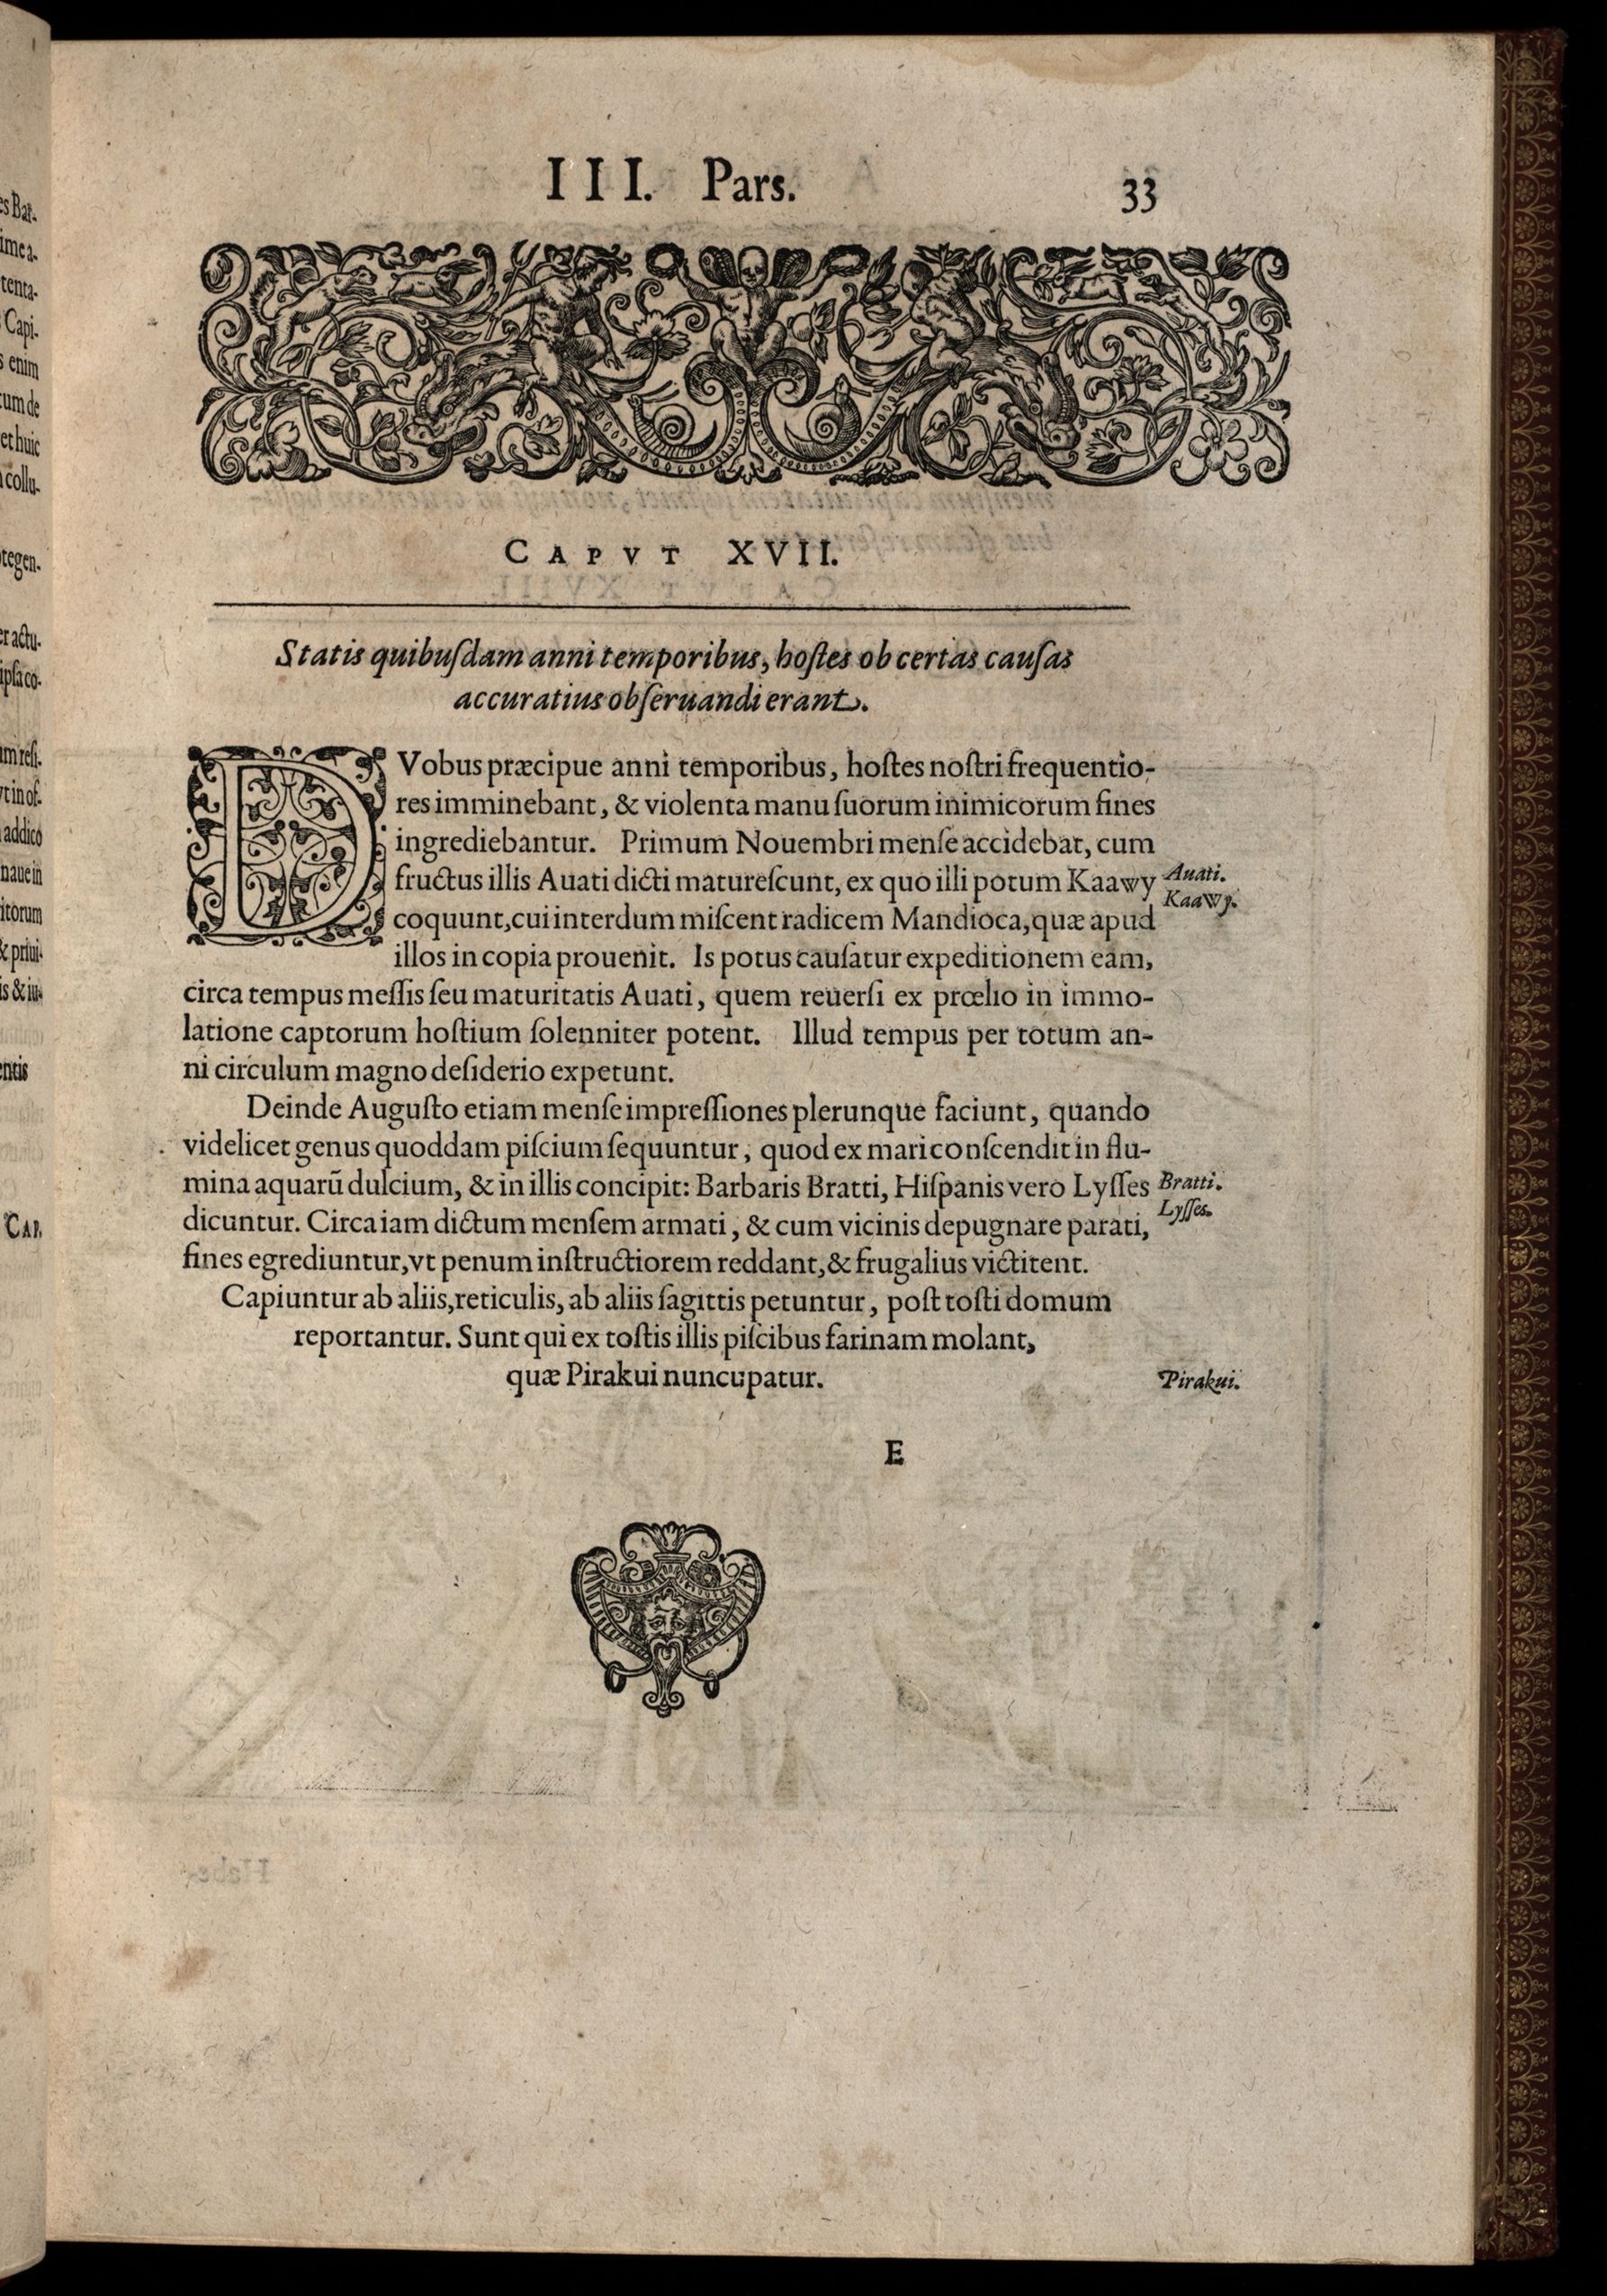 III. Pars. 33
CAPVT XVII.
Statis quibuſdam anni temporibus, hoſtes ob certas cauſas
accuratius obſeruandi erant.
DVobus præcipue anni temporibus, hoſtes noſtri frequentio-
res imminebant, & violenta manu ſuorum inimicorum fines
ingrediebantur. Primum Nouembri menſe accidebat, cum
fructus illis Auati dicti matureſcunt, ex quo illi potum Kaawy
Auati.
Kaawy.
coquunt, cui interdum miſcent radicem Mandioca, quæ apud
illos in copia prouenit. Is potus cauſatur expeditionem eam,
circa tempus meſſis ſeu maturitatis Auati, quem reuerſi ex prœlio in immo-
latione captorum hoſtium ſolenniter potent. Illud tempus per totum an-
ni circulum magno deſiderio expetunt.
Deinde Auguſto etiam menſe impreſſiones plerunque faciunt, quando
videlicet genus quoddam piſcium ſequuntur, quod ex mari conſcendit in flu-
mina aquarū dulcium, & in illis concipit: Barbaris Bratti, Hiſpanis vero Lyſſes
Bratti.
Lyſſes.
dicuntur. Circa iam dictum menſem armati, & cum vicinis depugnare parati,
fines egrediuntur, vt penum inſtructiorem reddant, & frugalius victitent.
Capiuntur ab aliis, reticulis, ab aliis ſagittis petuntur, poſt toſti domum
reportantur. Sunt qui ex toſtis illis piſcibus farinam molant,
quæ Pirakui nuncupatur.
Pirakui.
E